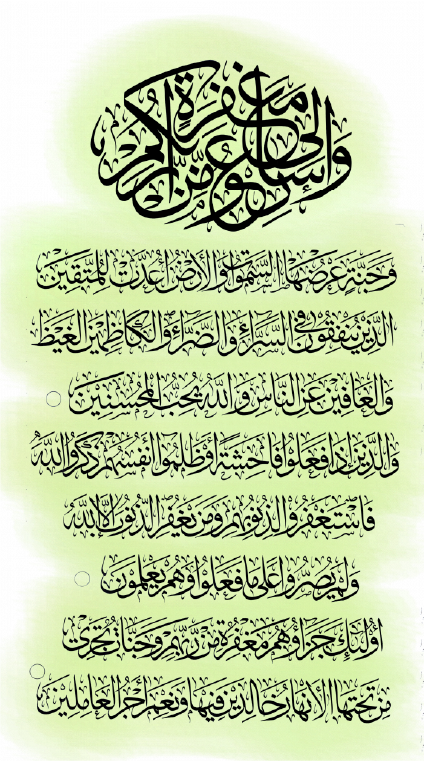 وَسَارِعُوا إِلَىٰ مَغْفِرَةٍ مِّن رَّبِّكُمْ
وَجَنَّةٍ عَرْضُهَا السَّمَٰوَاتُ وَالْأَرْضُ أُعِدَّتْ لِلْمُتَّقِينَ
الَّذِينَ يُنفِقُونَ فِي السَّرَّاءِ وَالضَّرَّاءِ وَالْكَاظِمِينَ الْغَيْظَ
وَالْعَافِينَ عَنِ النَّاسِ وَاللَّهُ يُحِبُّ الْمُحْسِنِينَ
وَالَّذِينَ إِذَا فَعَلُوا فَاحِشَةً أَوْ ظَلَمُوا أَنفُسَهُمْ ذَكَرُوا اللَّهَ
فَاسْتَغْفَرُوا لِذُنُوبِهِمْ وَمَن يَغْفِرُ الذُّنُوبَ إِلَّا اللَّهُ
وَلَمْ يُصِرُّوا عَلَىٰ مَا فَعَلُوا وَهُمْ يَعْلَمُونَ
أُولَٰئِكَ جَزَاؤُهُم مَّغْفِرَةٌ مِّن رَّبِّهِمْ وَجَنَّاتٌ تَجْرِي
مِن تَحْتِهَا الْأَنْهَارُ خَالِدِينَ فِيهَا وَنِعْمَ أَجْرُ الْعَامِلِينَ